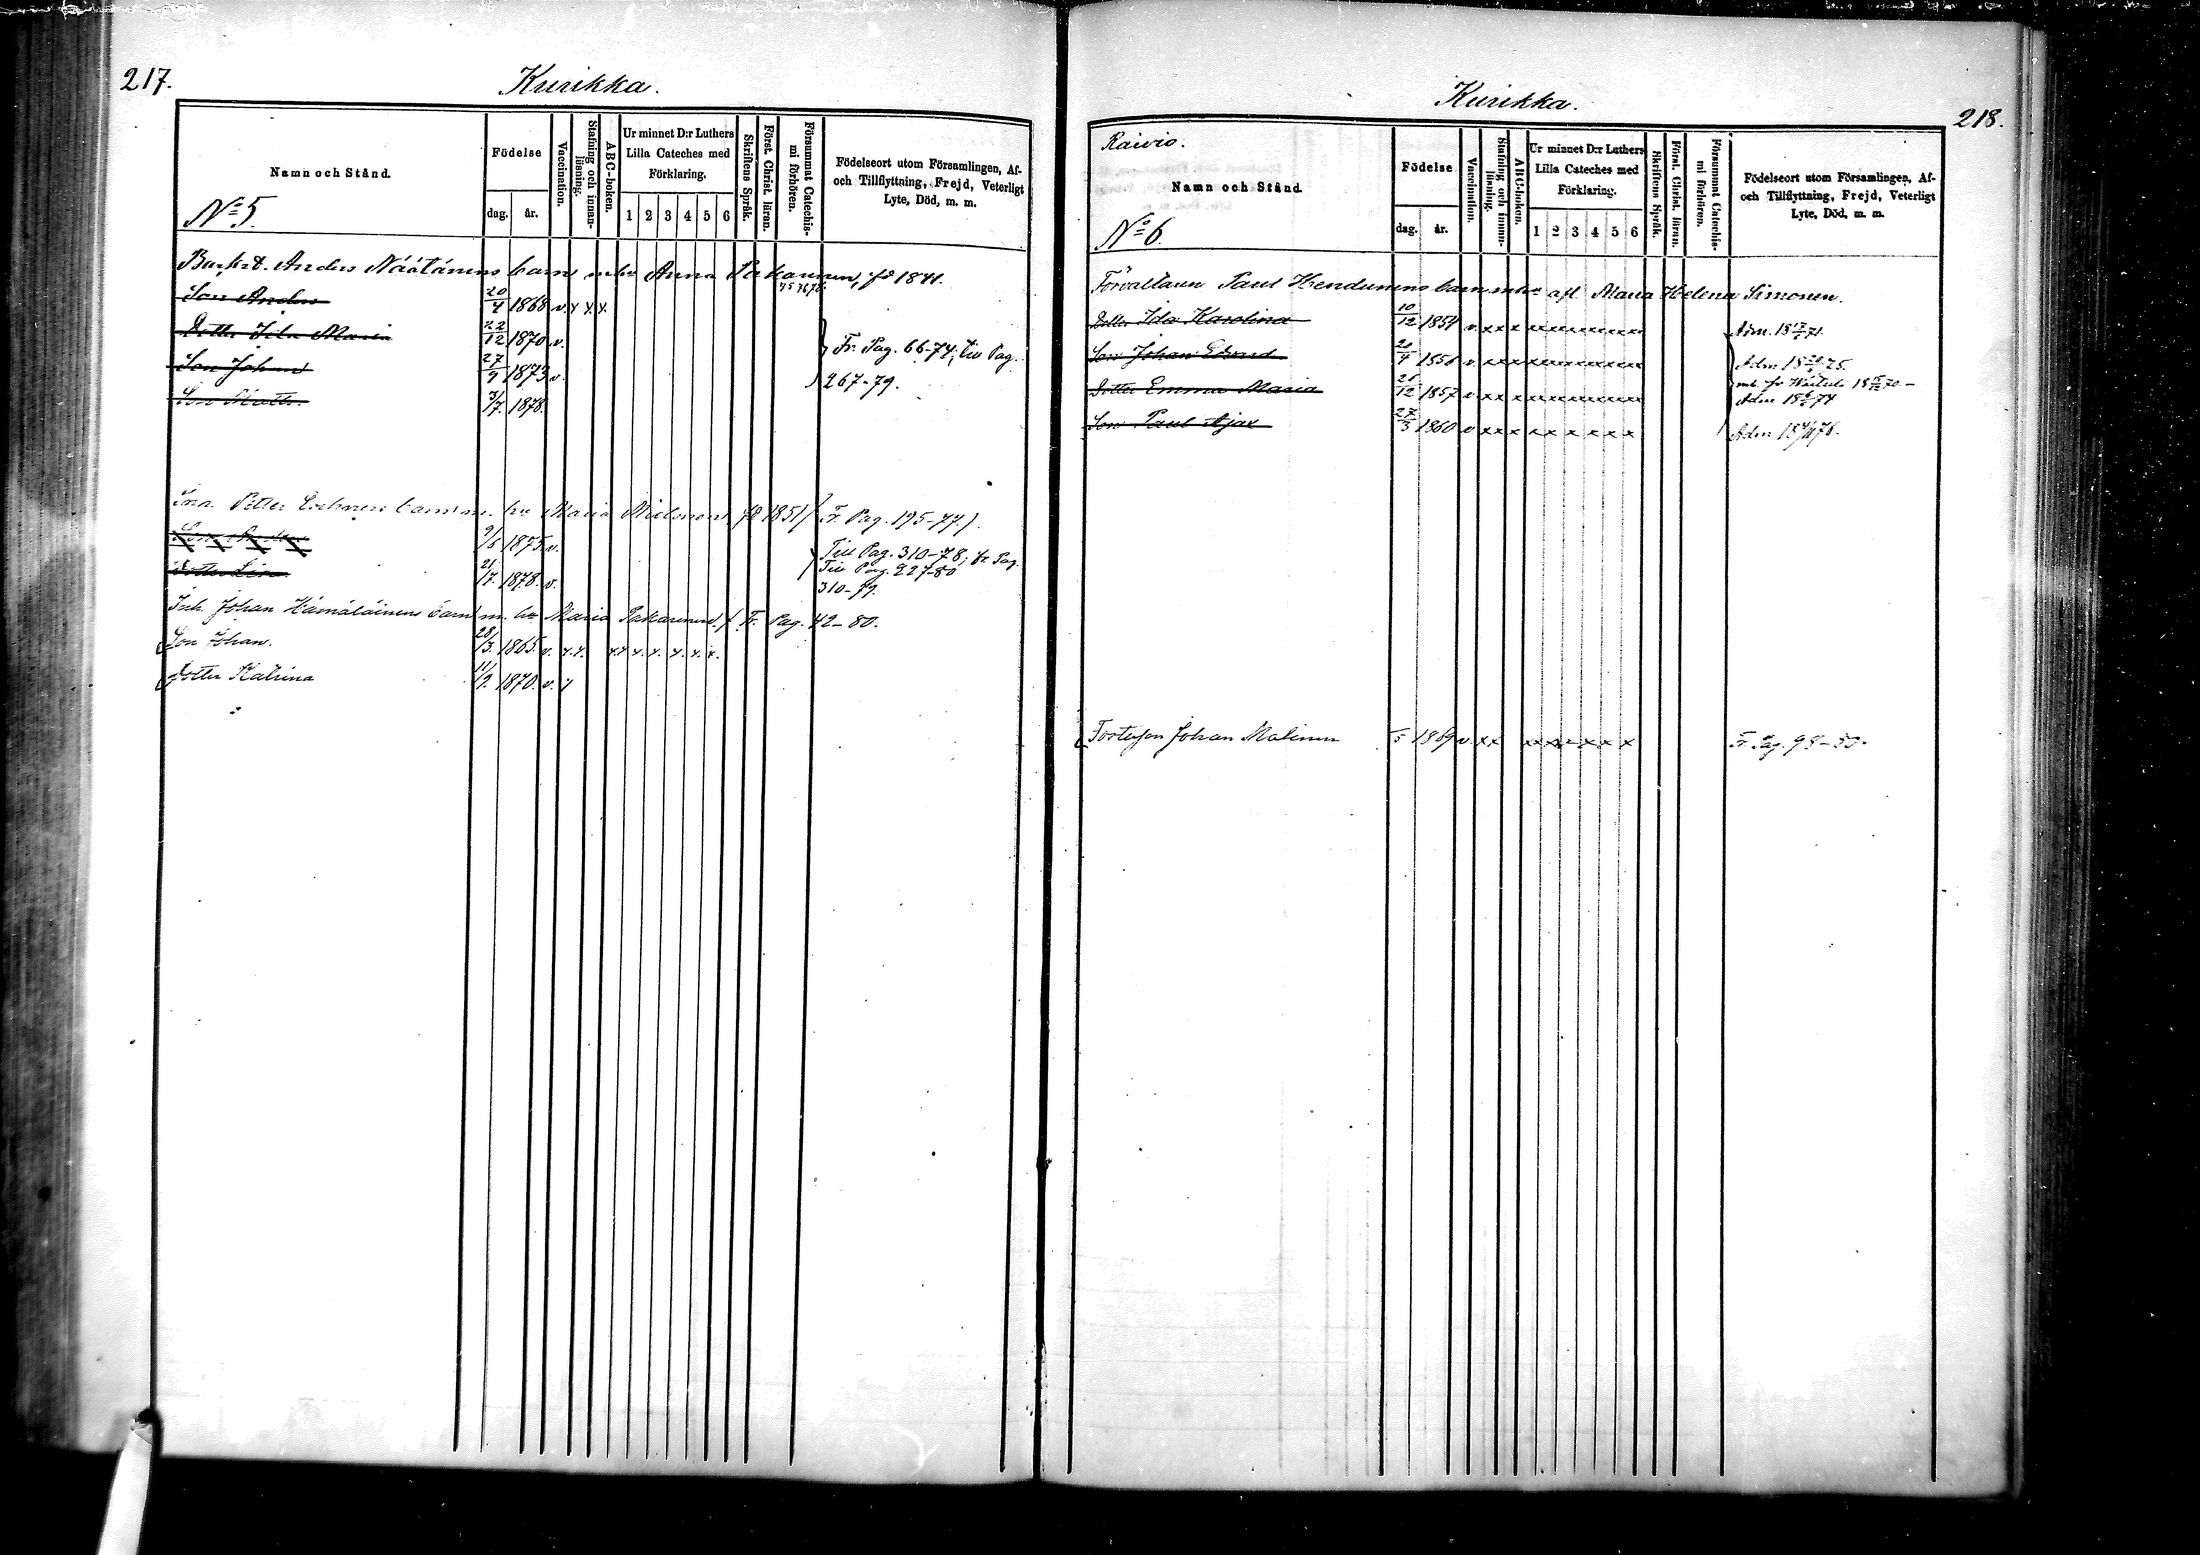 217.
Kurikka.
Namn och Stånd.
Födelse
dag.
år.
Vaccination.
Stafning och innan-
läsning.
ABC-boken.
Ur minnet D:r Luthers
Lilla Cateches med
Förklaring.
1 2 3 4 5 6
Skriftens Språk.
Först. Christ. läran.
Försummat Catechis-
mi förhören.
Födelseort utom Församlingen, Af-
och Tillflyttning, Frejd, Veterligt
Lyte, Död, m. m.
No 5.
Anders Näätänens barn m hu Anna Pakarinen, fd 1841.
Son Anders 20/4 1868 v. x x x
Dotter Maria 22/12 1870 v.
Son Johan 27/9 1873 v.
Fr. Pag. 66-74, till Pag.
267-79.
Son Matts. 3/7. 1878.
Petter barn m. hu Maria fd 1851 Fr. Pag. 195-77.
Son 9/6 1875 v.
Till Pag. 310-78, fr Pag.
Till Pag. 227-80
310-79.
Dotter Lisa 21/7. 1878. v.
Inh. Johan Hämäläinens barn m. hu Maria Pakarinen Fr. Pag. 42-80.
Son Johan. 28/3. 1865. v. x. x. x x x. x. x. x. x.
Dotter Katrina 11/2. 1870. v. x
218.
Kurikka.
Raivio.
Namn och Stånd.
Födelse
dag.
år.
Vaccination.
Stafning och innan-
läsning.
ABC-boken.
Ur minnet D:r Luthers
Lilla Cateches med
Förklaring.
1 2 3 4 5 6
Skriftens Språk.
Först. Christ. läran.
Försummat Catechis-
mi förhören.
Födelseort utom Församlingen, Af-
och Tillflyttning, Frejd, Veterligt
Lyte, Död, m. m.
No 6.
Förvaltaren Paul barn m hu afl. Maria Helena Simonen.
Dotter Ida Karolina 10/12 1854 v x x x Adm.
Son Johan Edvard 20/4 v x x x Adm
Dotter Emma Maria 21/12 1857 v x x x Adm
Son Paul Ajax 27/3 1860 v x x x x x x x x x Adm
Fosterson Johan Malinen 1869 v. x x x x x x x x Fr. Pag. 98-80.